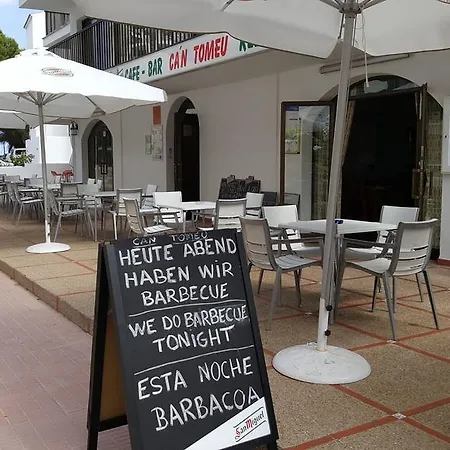 CAFE - BAR CA'N TOMEU
CA'N TOMEU
HEUTE ABEND
HABEN WIR
BARBECUE
WE DO BARBECUE
TONIGHT
ESTA NOCHE
BARBACOA
San Miguel